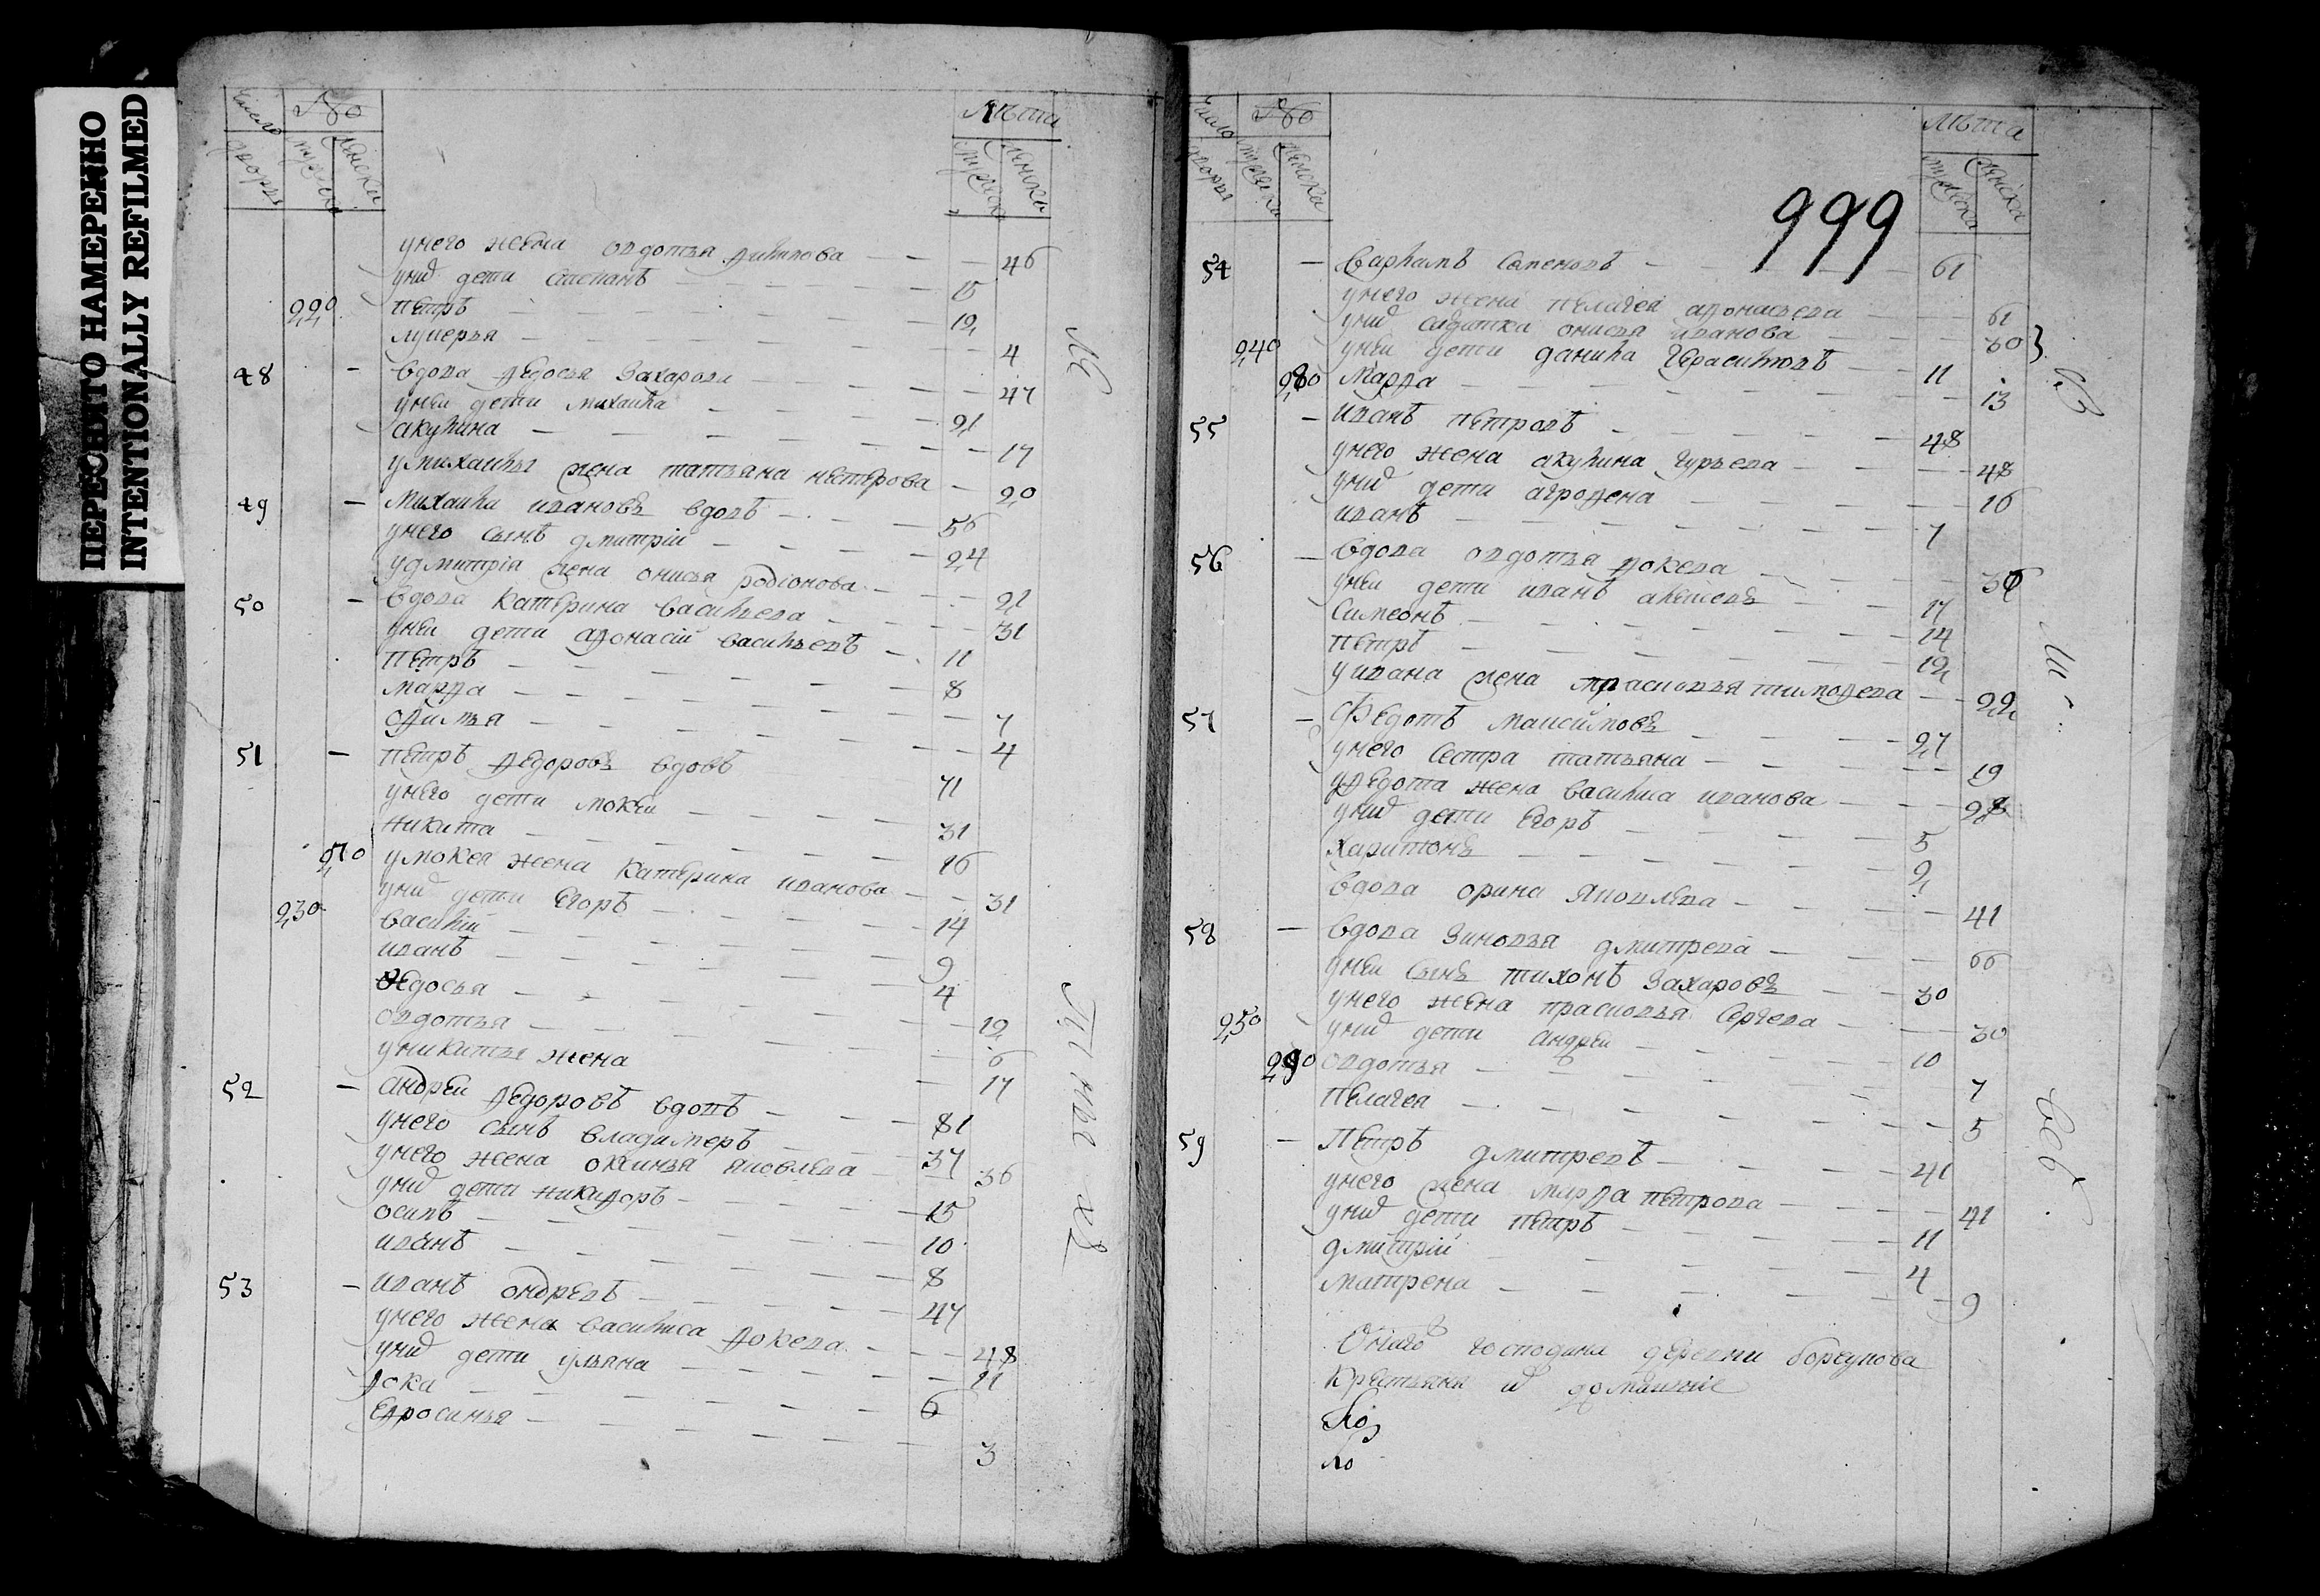 ПЕРЕСНЯТО НАМЕРЕННО
INTENTIONALLY REFILMED
Число дворы № мужеска женски лѣта мужеска женска
у него жена овдотья филипова — 46
у них дети степанъ — 15
220 петръ — 12
лукерья — 4
48 — вдова федосья захарова — 47
у неи дети михаила — 21
акулина — 17
у михаилы жена татьяна нестерова — 20
49 — михаила ивановъ вдовъ — 56
у него сынъ дмитрій — 24
у дмитрія жена онисья родіонова — 21
50 — вдова катерина васильева — 31
у неи дети афонасій васильевъ — 11
петръ — 8
марфа — 7
офимья — 4
51 — петръ федоровъ вдовъ 71
у него дети мокеи — 31
никита — 16
270 у мокея жена катерина иванова — 31
у них дети егоръ — 14
230 василій — 9
иванъ — 4
федосья — 12
овдотья — 6
у никиты жена — 17
52 — андреи федоровъ вдовъ — 81
у него сынъ владимеръ — 37
у него жена оксинья яковлева — 36
у них дети никифоръ — 15
осипъ — 10
иванъ — 8
53 — иванъ ондревъ — 47
у него жена василиса фокева — 48
у них дети ульяна — 11
фока — 6
ефросинья — 3
Число дворы № мужеска женска лѣта мужеска женска
999
54 — варламъ семеновъ — 61
у него жена пелагея афонасьева — 61
у них сидитка онисья иванова — 30
240 у неи дети данила герасимовъ — 11
280 марфа — 13
55 — иванъ петровъ — 48
у него жена акулина гурьева — 48
у них дети агрофена — 16
иванъ — 7
56 — вдова овдотья фокева — 36
у неи дети иванъ алексеевъ — 17
симеонъ — 14
петръ — 12
у ивана жена прасковья тимофева — 22
57 — Федотъ максимовъ — 27
у него сестра татьяна — 19
у федота жена василиса иванова — 28
у них дети егоръ — 5
харитонъ — 2
вдова орина яковлева — 41
58 — вдова зиновья дмитрева — 66
у неи сынъ тихонъ захаровъ — 30
у него жена прасковья сергева — 30
250 у них дети андреи — 10
290 овдотья — 7
пелагея — 5
59 — Петръ дмитревъ — 41
у него жена марфа петрова — 41
у них дети петръ — 11
дмитрій — 4
матрена — 9
Онаго господина деревни борсукова
крестьяня и домашние